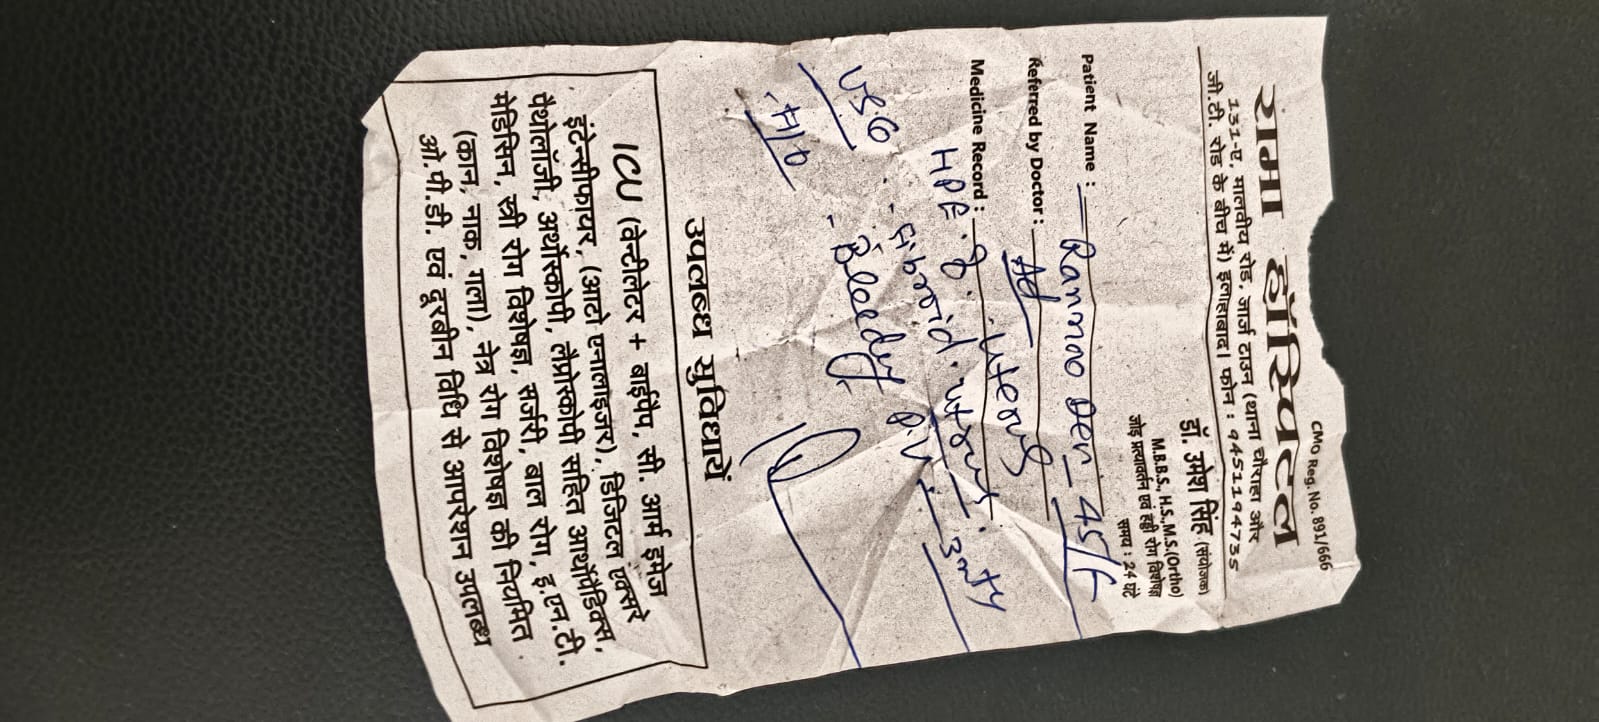 CMO Reg. No. 891/666
रामा हॉस्पिटल
131-ए, मालवीय रोड, जार्ज टाउन (थाना चौराहा और
जी.टी. रोड के बीच में) इलाहाबाद। फोन : 9451194735
डॉ. उमेश सिंह (संयोजक)
M.B.B.S., H.S.,M.S.(Ortho)
जोड़ प्रत्यावर्तन एवं हड्डी रोग विशेषज्ञ
समय : 24 घंटे
Patient Name : 45/F
Referred by Doctor :
Medicine Record :
HPE. uterus
USG - fibroid.
- Bleeding P.V.
उपलब्ध सुविधायें
ICU (वेन्टीलेटर + बाईपैप, सी. आर्म इमेज
इंटेन्सीफायर, (आटो एनालाइजर), डिजिटल एक्सरे
पैथोलॉजी, अर्थोस्कोपी, लैप्रोस्कोपी सहित आर्थोपैडिक्स,
मेडिसिन, स्त्री रोग विशेषज्ञ, सर्जरी, बाल रोग, इ.एन.टी.
(कान, नाक, गला), नेत्र रोग विशेषज्ञ की नियमित
ओ.पी.डी. एवं दूरबीन विधि से आपरेशन उपलब्ध